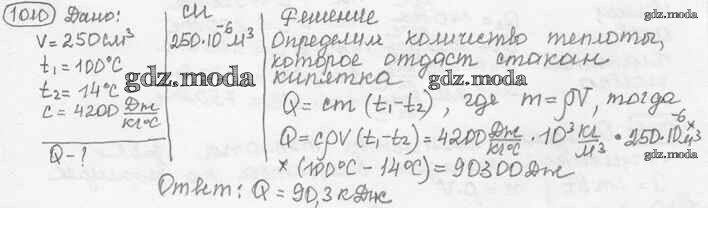 1010 Дано:
V = 250 см³
t₁ = 100°C
t₂ = 14°C
c = 4200 Дж/кг°C
Q - ?
СИ
250·10⁻⁶ м³
Решение
Определим количество теплоты,
которое отдаст стакан
кипятка
Q = cm (t₁-t₂), где m = ρV, тогда
Q = cρV (t₁-t₂) = 4200 Дж/кг°C · 10³ кг/м³ · 250·10⁻⁶ м³ ×
× (100°C - 14°C) = 90300 Дж
Ответ: Q = 90,3 кДж
gdz.moda
gdz.moda
gdz.moda